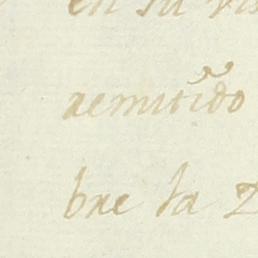 en su vis
remitido
bre la